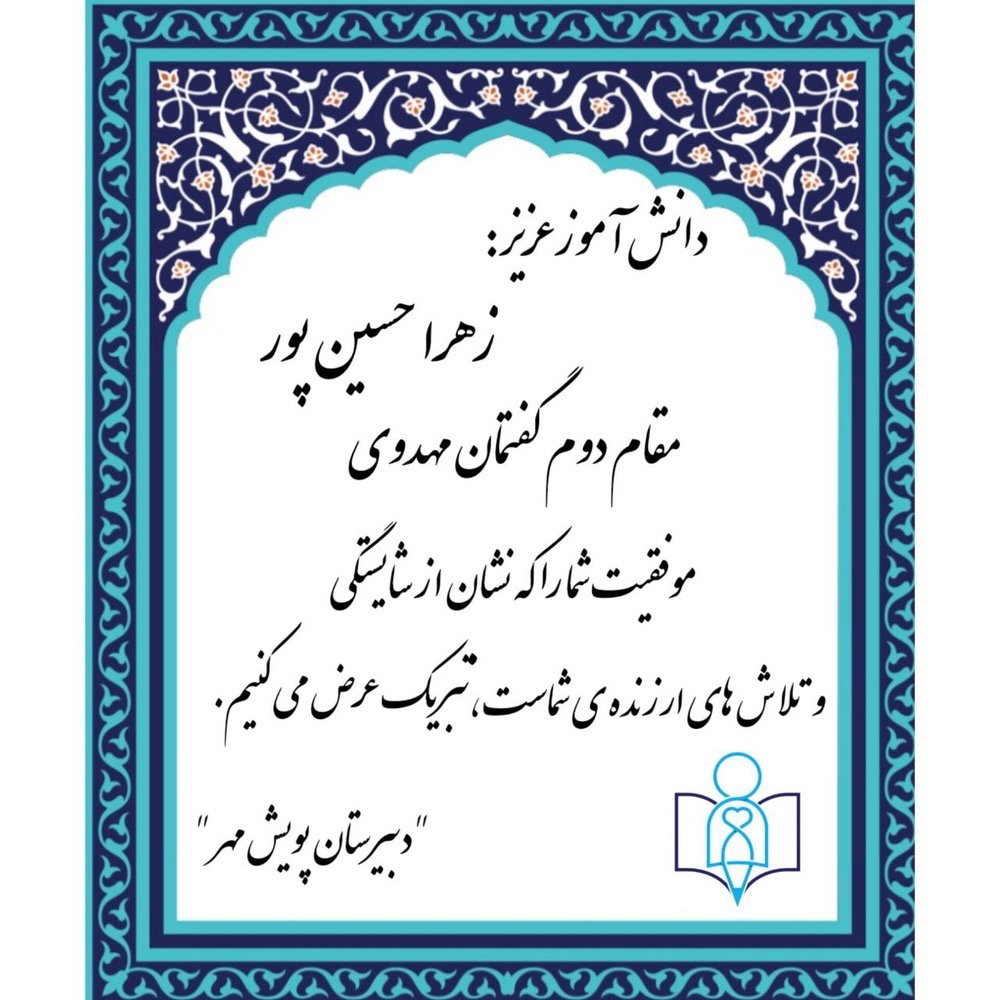 دانش آموز عزیز:
زهرا حسین پور
مقام دوم گفتمان مهدوی
موفقیت شما را که نشان از شایستگی
و تلاش های ارزنده ی شماست، تبریک عرض می کنیم.
"دبیرستان پویش مهر"